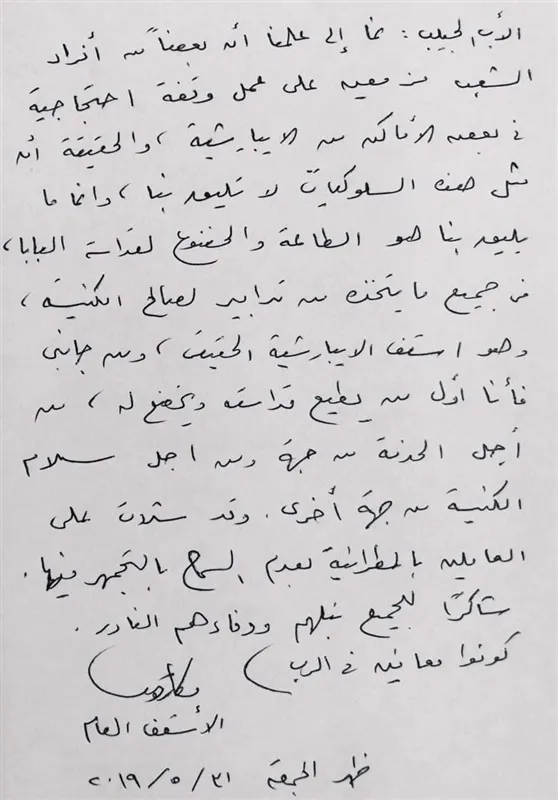 الأب الحبيب : نما إلى علمنا أن بعضاً من أفراد
الشعب مزمعين على عمل وقفة احتجاجية
فى بعض الأماكن من الايبارشية ، والحقيقة أن
مثل هذه السلوكيات لا تليق بنا ، وانما ما
يليق بنا هو الطاعة والخضوع لقداسة البابا ،
فى جميع ما يتخذه من تدابير لصالح الكنيسة ،
وهو اسقف الايبارشية الحقيقى ، ومن جانبى
فأنا أول من يطيع قداسته ويخضع له ، من
أجل الخدمة من جهة ومن اجل سلام
الكنيسة من جهة أخرى . وقد شددت على
العاملين بالمطرانية بعدم السماح بالتجمهر فيها .
شاكرًا للجميع نبلهم ووفاءهم النادر .
كونوا معافين فى الرب
مكاريوس
الأسقف العام
ظهر الجمعة ٣١/٥/٢٠١٩